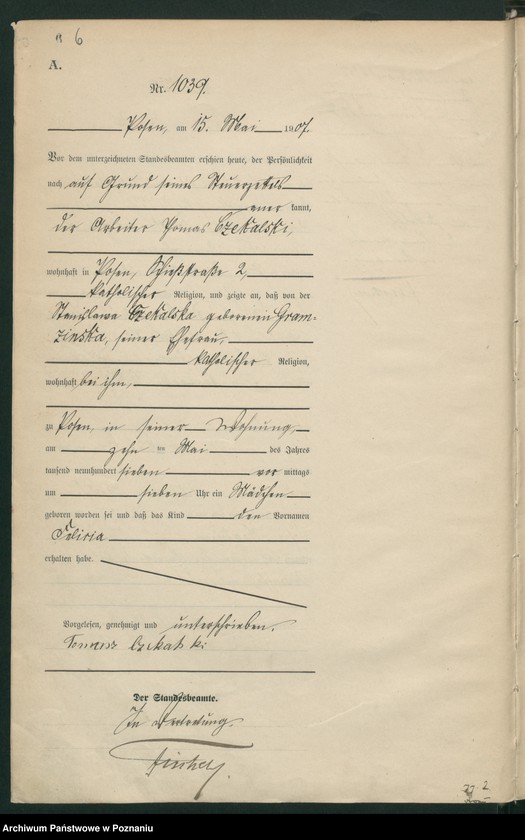 6
A.
Nr. 1039.
Posen, am 15. Mai 1907.
Vor dem unterzeichneten Standesbeamten erschien heute, der Persönlichkeit
nach auf Grund seines Steuerzettels
aner kannt,
der Arbeiter Thomas Czekalski,
wohnhaft in Posen, 2,
katholischer Religion, und zeigte an, daß von der
Stanislawa Czekalska geborenen Gram-
zinska, seiner Ehefrau,
katholischer Religion,
wohnhaft bei ihm,
zu Posen, in seiner Wohnung,
am zehn ten Mai des Jahres
tausend neunhundert sieben vor mittags
um sieben Uhr ein Mädchen
geboren worden sei und daß das Kind den Vornamen
Felicia
erhalten habe.
Vorgelesen, genehmigt und unterschrieben.
Tomasz Czekalski
Der Standesbeamte.
In Vertretung.
Archiwum Państwowe w Poznaniu